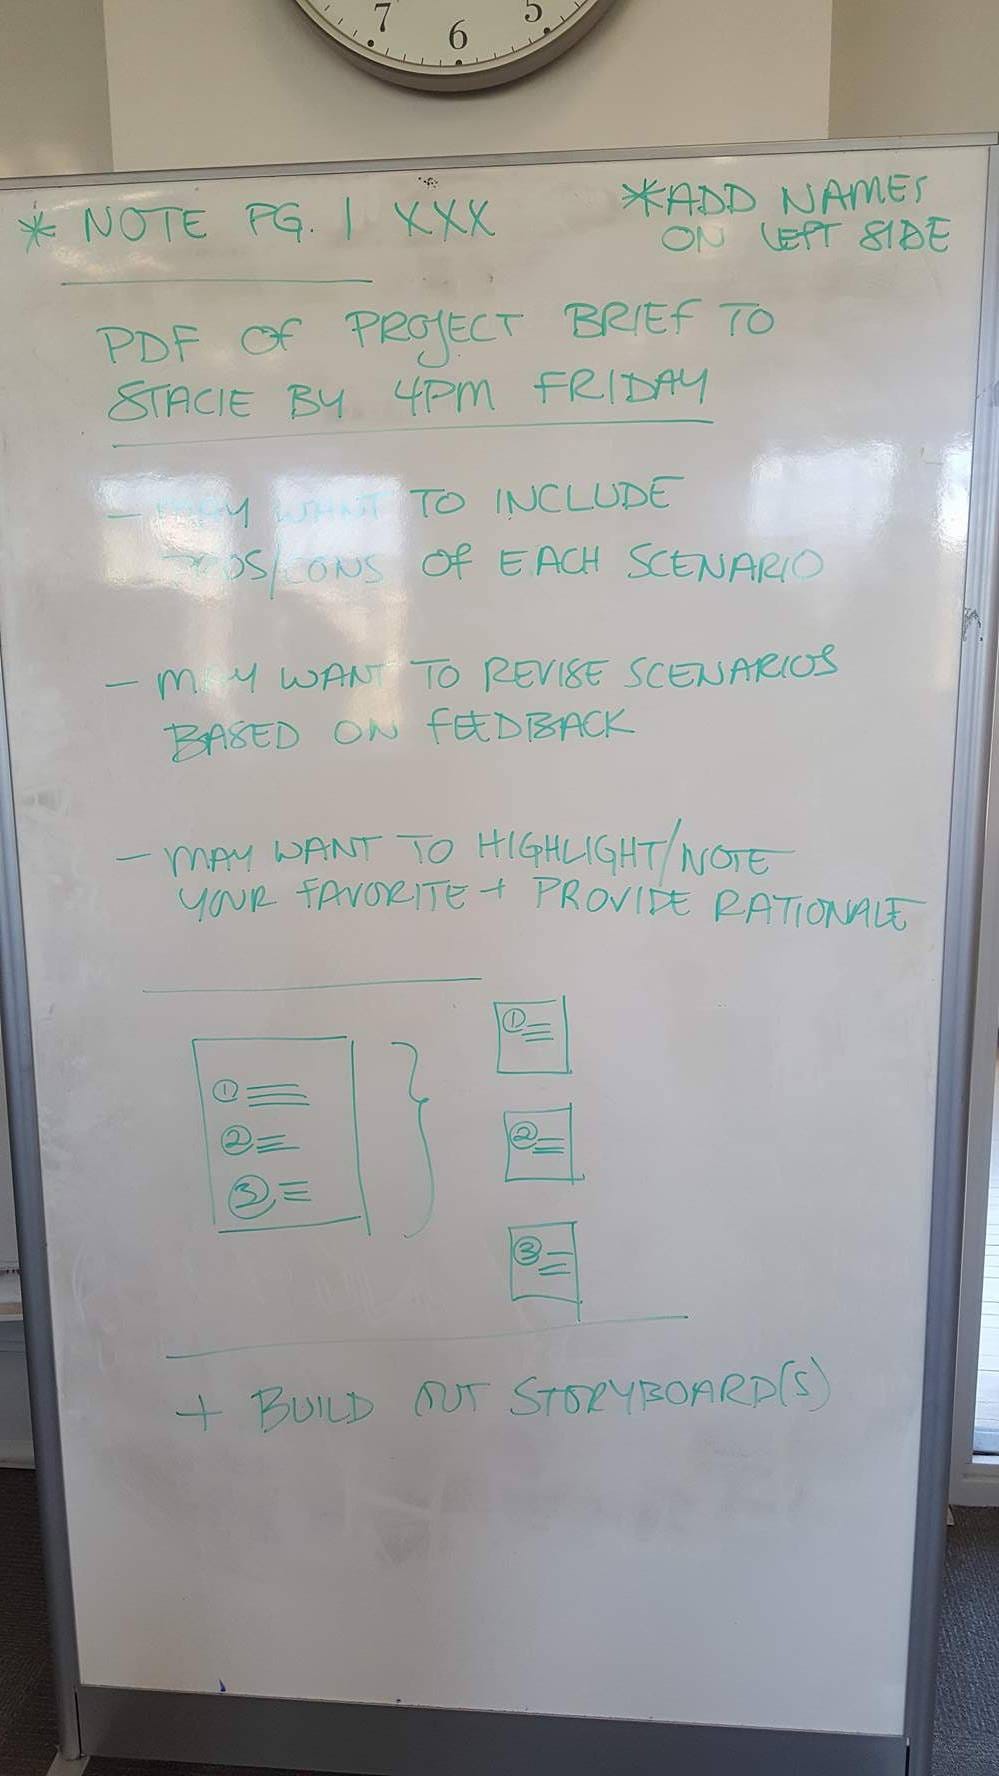 7 6 5
* NOTE PG. 1 XXX
*ADD NAMES
ON LEFT SIDE
PDF OF PROJECT BRIEF TO
STACIE BY 4PM FRIDAY
- MAY WANT TO INCLUDE
PROS/CONS OF EACH SCENARIO
- MAY WANT TO REVISE SCENARIOS
BASED ON FEEDBACK
- MAY WANT TO HIGHLIGHT/NOTE
YOUR FAVORITE + PROVIDE RATIONALE
1
2
3
1
2
3
+ BUILD OUT STORYBOARD(S)